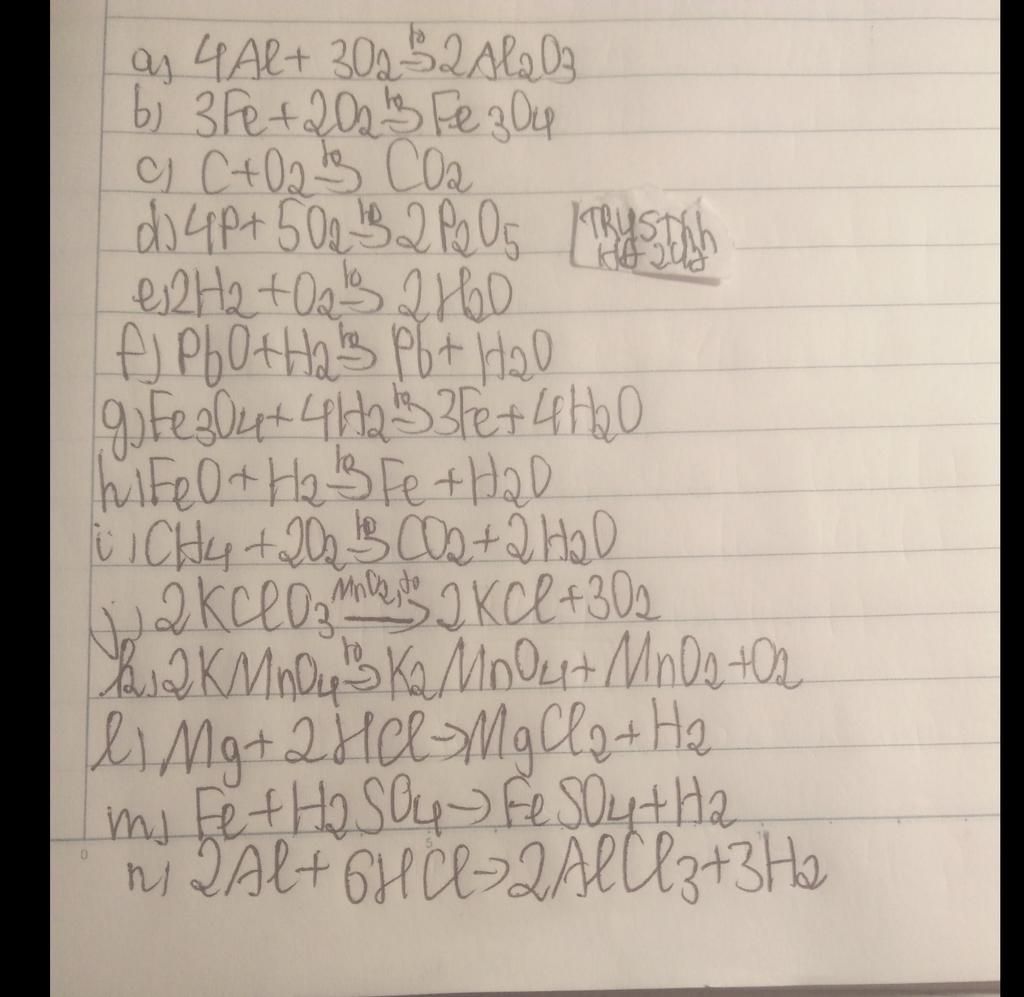 a) 4Al + 3O2 t°→ 2Al2O3
b) 3Fe + 2O2 t°→ Fe3O4
c) C + O2 t°→ CO2
d) 4P + 5O2 t°→ 2P2O5
e) 2H2 + O2 t°→ 2H2O
f) PbO + H2 t°→ Pb + H2O
g) Fe3O4 + 4H2 t°→ 3Fe + 4H2O
h) FeO + H2 t°→ Fe + H2O
i) CH4 + 2O2 t°→ CO2 + 2H2O
j) 2KClO3 MnO2, t° → 2KCl + 3O2
k) 2KMnO4 t°→ K2MnO4 + MnO2 + O2
l) Mg + 2HCl → MgCl2 + H2
m) Fe + H2SO4 → FeSO4 + H2
n) 2Al + 6HCl → 2AlCl3 + 3H2
0 5